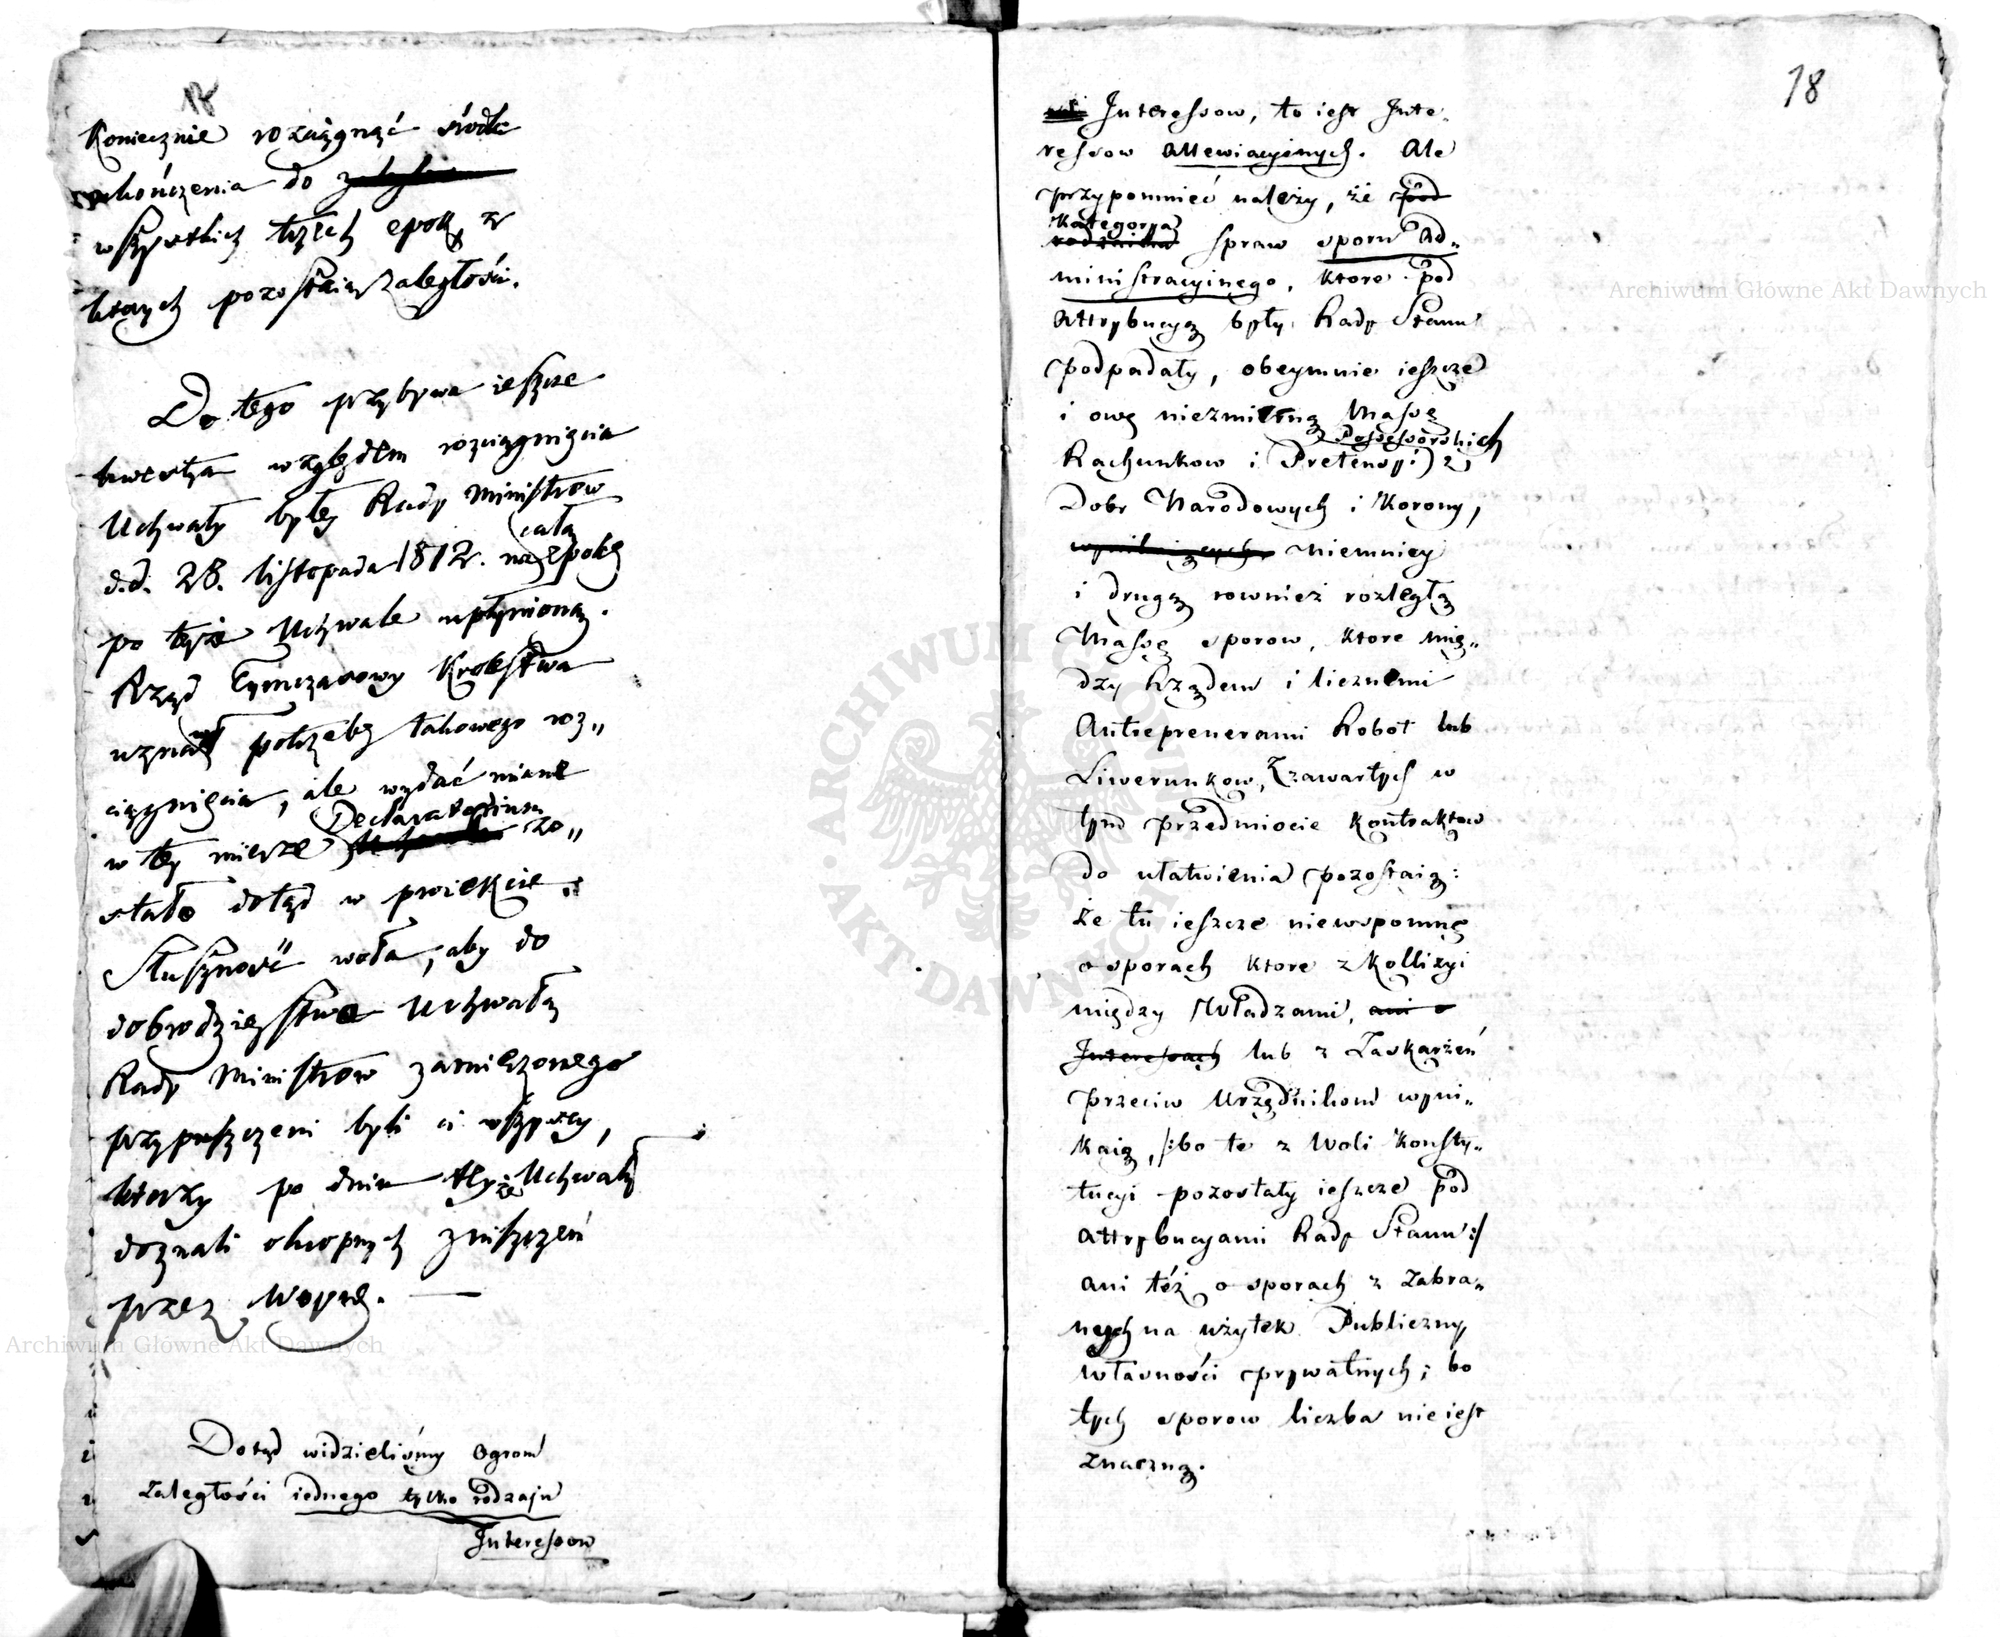 Koniecznie rozciągnąć środk
ukończenia do
wszystkich trzech epok, z
których pozostaią zaległości.
Do tego przybywa ieszcze
kwestya względem rozciągnięcia
Uchwały byłey Rady Ministrow
całą
d.d. 28. listopada 1812. na epokę
po teyże Uchwale upłynioną.
Rząd Tymczasowy Krolestwa
uznał potrzebę takowego roz„
ciągnięcia, ale wydać miane
Declaratorium
w tey mierze zo„
stało dotąd w proiekcie.
Słuszność woła, aby do
dobrodzieystwa Uchwałą
Rady Ministrow zamierzonego
przypuszczeni byli ci wszyscy,
ktorzy po dniu teyże Uchwały
doznali okropnych zniszczeń
przez Woynę. —
Dotąd widzieliśmy ogrom
zaległości iednego tylko rodzaju
Interessow
18
Interessow, to iest Inte„
ressow allewiacyinych. Ale
przypomnieć należy, że pod
Kategorya
rodzaiu spraw sporu Ad„
ministracyinego, ktore pod
Attrybucyą były Rady Stanu
podpadały, obeymuie ieszcze
i owę niezmierną Massę
Possessorskich
Rachunkow i Pretensyi z
Dobr Narodowych i Korony,
wynikaiących niemniey
i drugą rownież rozległą
Massę sporow, ktore mię„
dzy Rządem i licznemi
Antreprenerami Robot lub
Liwerunkow, z zawartych w
tym przedmiocie Kontraktow
do ułatwienia pozostaią:
że tu ieszcze niewspomnę
o sporach ktore z Kollizyi
między Władzami, ani o
Interessach lub z Zaskarżeń
przeciw Urzędnikom wyni„
kaią, /:bo te z Woli Konsty„
tucyi pozostały ieszcze pod
attrybucyami Rady Stanu:/
ani też o sporach z zabra„
nych na użytek Publiczny
własności prywatnych; bo
tych sporow liczba nie iest
znaczną.
Archiwum Główne Akt Dawnych
Archiwum Główne Akt Dawnych
ARCHIWUM GŁÓWNE AKT DAWNYCH